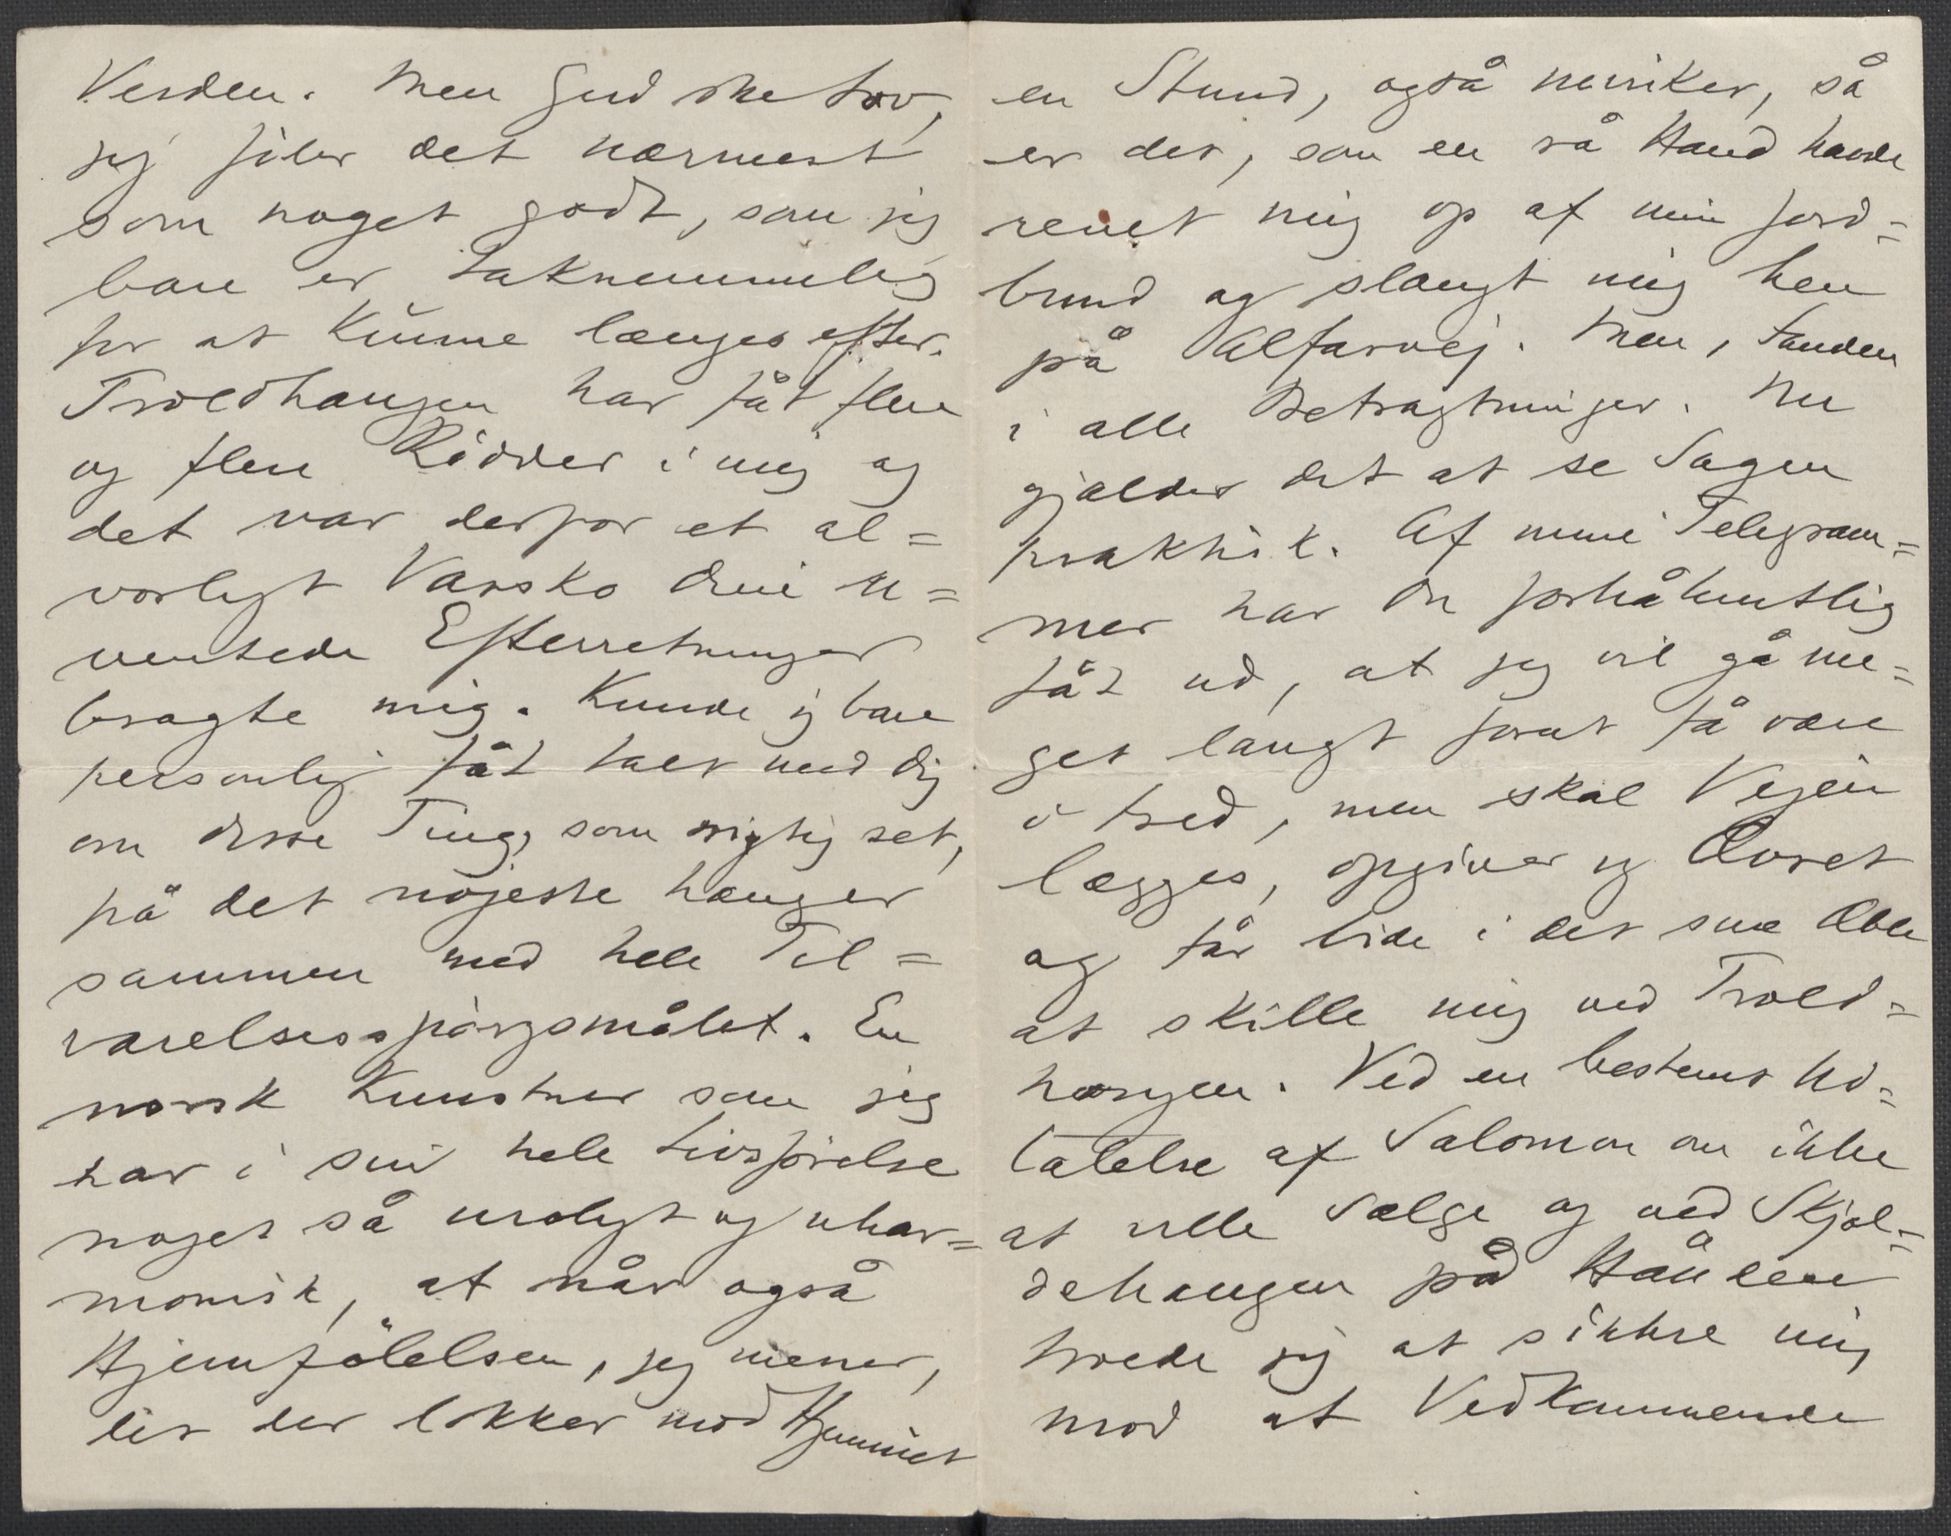 Verden. Men Gud ske Lov,
jeg föler det nærmest
som noget godt, som jeg
bare er taknemmelig
for at kunne længes efter.
Troldhaugen har fåt flere
og flere Rödder i mig og
det var derfor et al=
vorligt Varsko dine u=
ventede Efterretninger
bragte mig. Kunde jeg bare
personlig fåt talt med dig
om disse Ting, som rigtig set,
på det nöjeste hænger
sammen med hele Til=
værelsesspörgsmålet. En
norsk Kunstner som jeg
har i sin hele Livsförelse
noget så uroligt og uhar=
monisk, at når også
Hjemfölelsen, jeg mener,
det der lokker mod Hjemmet
en Stund, også svikter, så
er det, som en rå Hånd havde
revet mig op af min Jord=
bund og slængt mig hen
på Alfarvej. Men, Fanden
i alle Betragtninger. Nu
gjælder det at se Sagen
praktisk. Af mine Telegram=
mer har Du forhåbentlig
fåt ud, at jeg vil gå me=
get langt forat få være
i Fred, men skal Vejen
lægges, opgiver jeg Ævret
og får bide i det sure Æble
at skille mig ved Trold=
haugen. Ved en bestemt Ud=
talelse af Salomon om ikke
at ville sælge og ved Skjol=
dehaugen på Hånden
troede jeg at sikkre mig
mod at Vedkommende